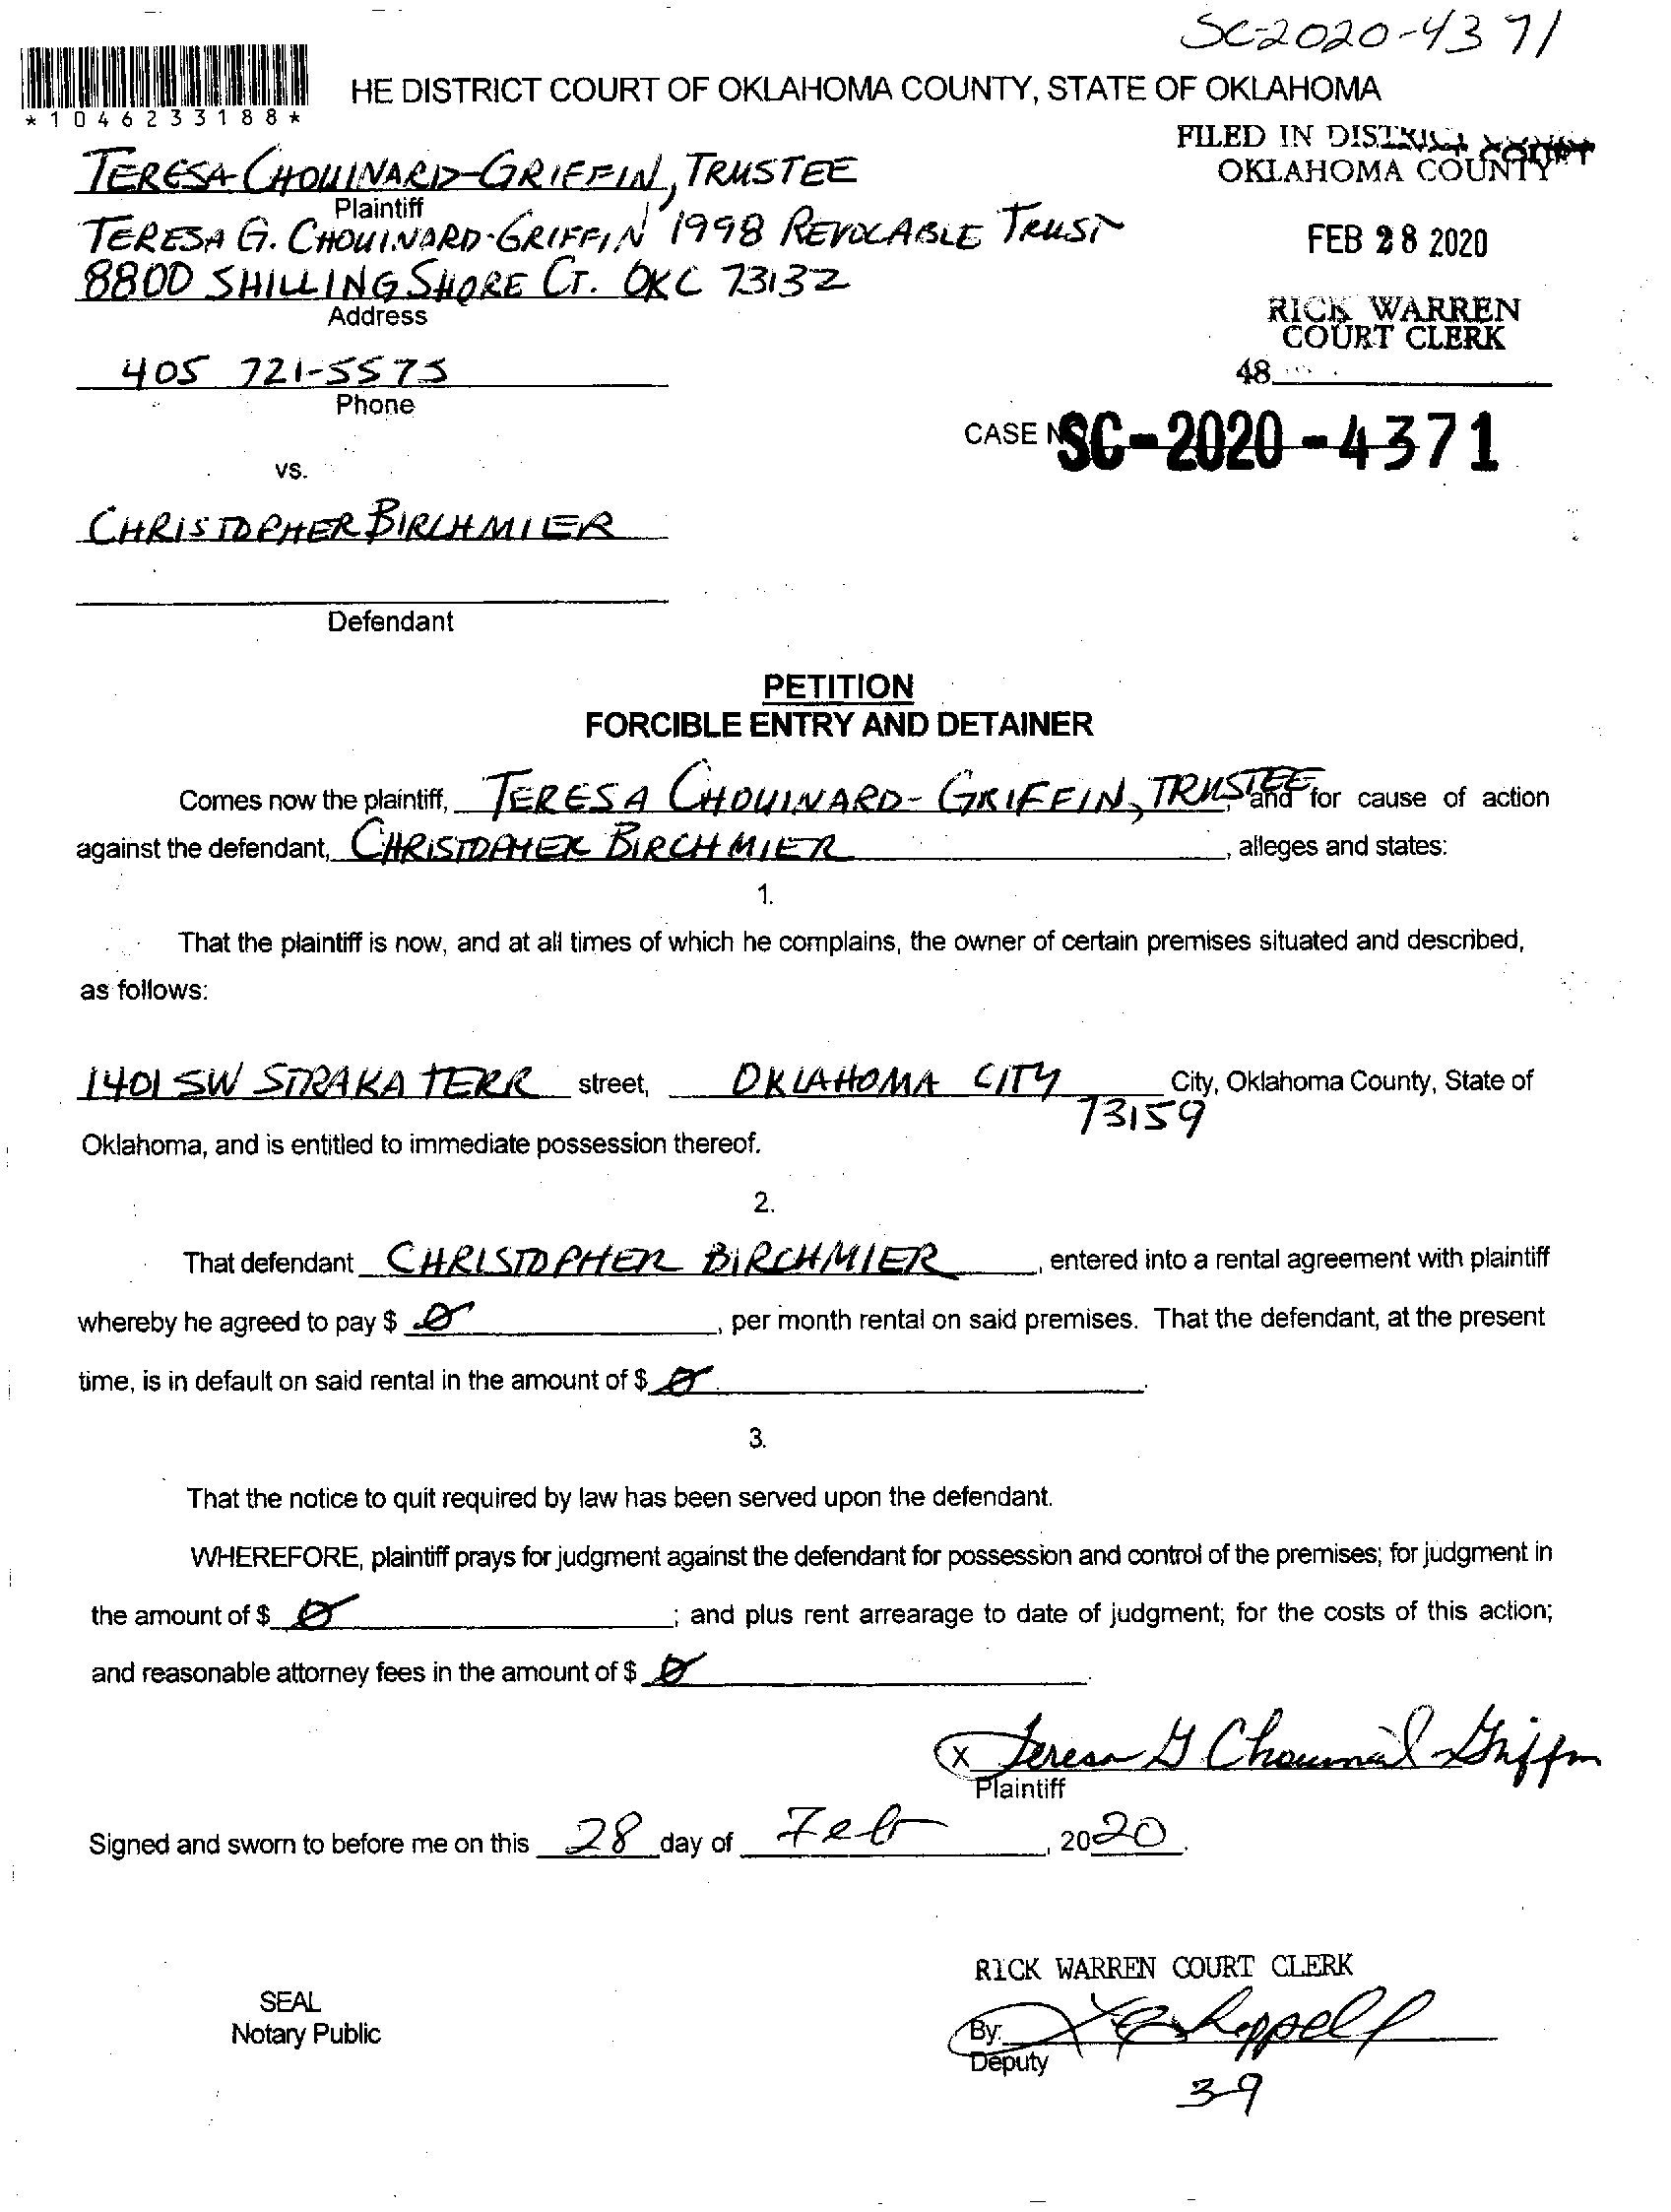 SC-2020-4371
HE DISTRICT COURT OF OKLAHOMA COUNTY, STATE OF OKLAHOMA
*1046233188*
FILED IN DISTRICT COURT
OKLAHOMA COUNTY
TERESA CHOUINARD-GRIFFIN, TRUSTEE
Plaintiff
TERESA G. CHOUINARD-GRIFFIN 1998 REVOCABLE TRUST
FEB 28 2020
8800 SHILLING SHORE CT. OKC 73132
Address
RICK WARREN
COURT CLERK
405 721-5575
48
Phone
CASE NO SC-2020-4371
vs.
CHRISTOPHER BIRCHMIER
Defendant
PETITION
FORCIBLE ENTRY AND DETAINER
Comes now the plaintiff, TERESA CHOUINARD-GRIFFIN, TRUSTEE, and for cause of action
against the defendant, CHRISTOPHER BIRCHMIER, alleges and states:
1.
That the plaintiff is now, and at all times of which he complains, the owner of certain premises situated and described,
as follows:
1401 SW STRAKA TERR street, OKLAHOMA CITY City, Oklahoma County, State of
73159
Oklahoma, and is entitled to immediate possession thereof.
2.
That defendant CHRISTOPHER BIRCHMIER, entered into a rental agreement with plaintiff
whereby he agreed to pay $ 0, per month rental on said premises. That the defendant, at the present
time, is in default on said rental in the amount of $ 0.
3.
That the notice to quit required by law has been served upon the defendant.
WHEREFORE, plaintiff prays for judgment against the defendant for possession and control of the premises; for judgment in
the amount of $ 0; and plus rent arrearage to date of judgment; for the costs of this action;
and reasonable attorney fees in the amount of $ 0.
X Teresa G Chouinard-Griffin
Plaintiff
Signed and sworn to before me on this 28 day of Feb, 2020.
RICK WARREN COURT CLERK
SEAL
Notary Public
By:
Deputy
39